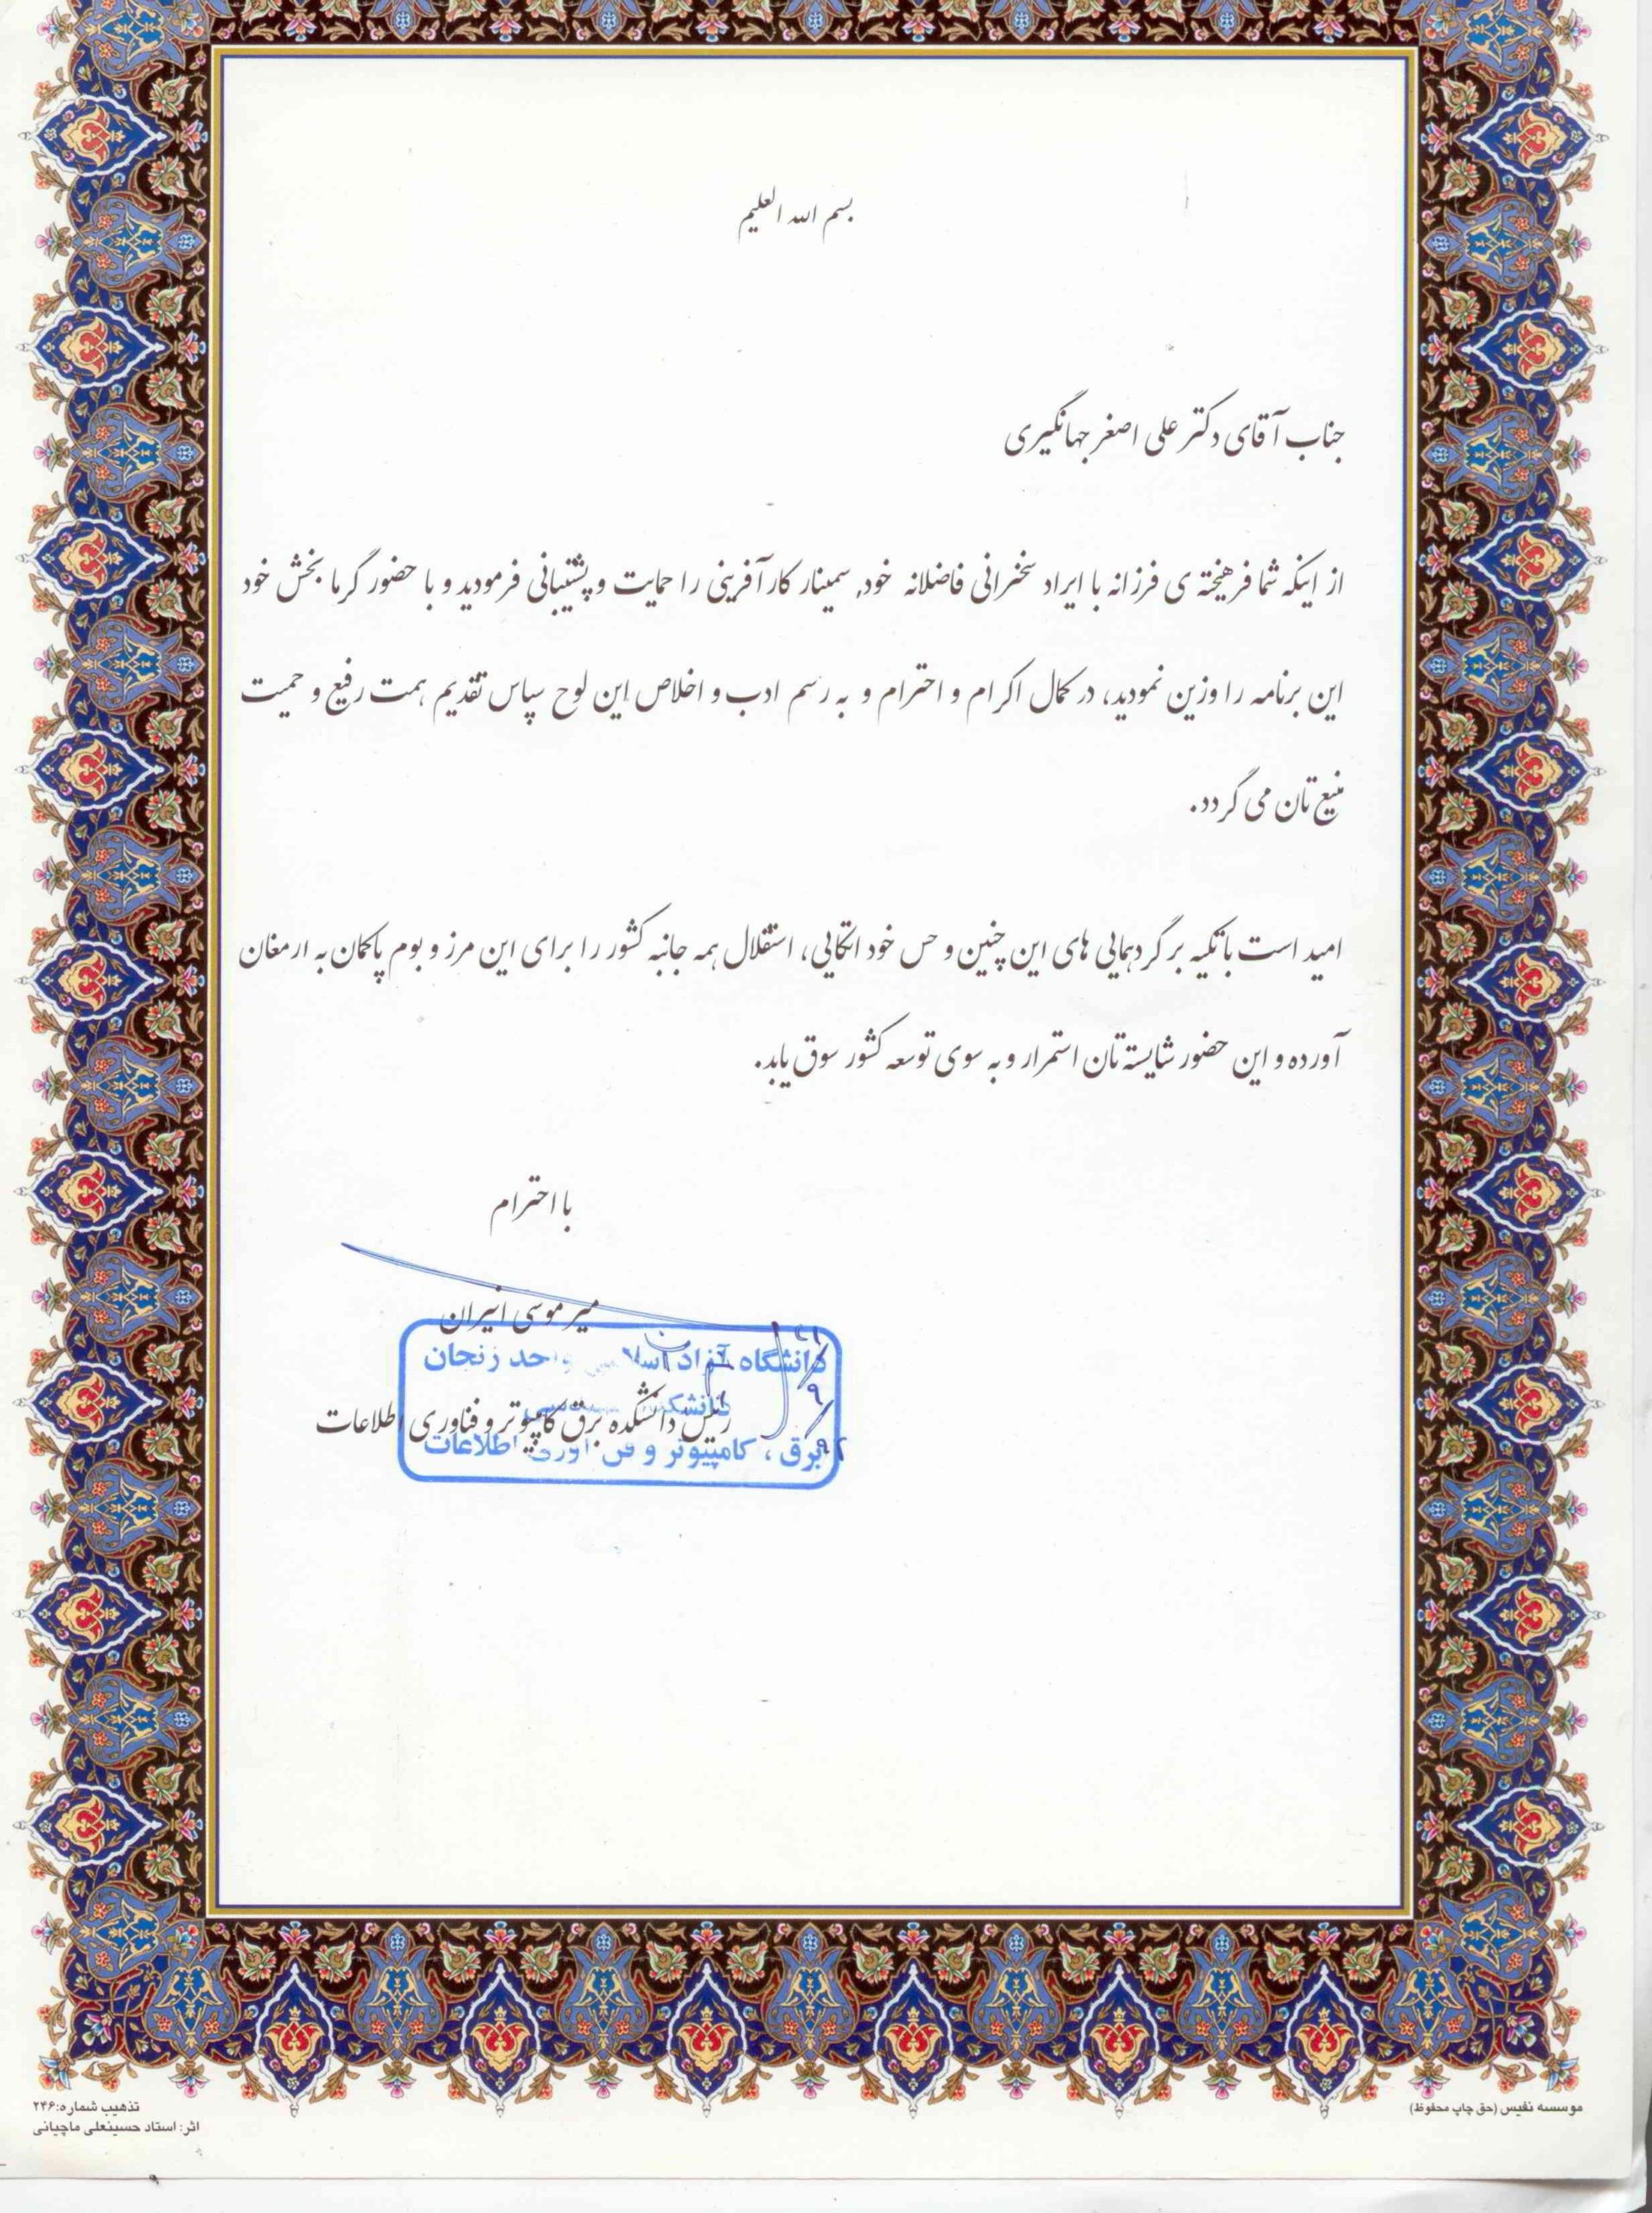 بسم الله العلیم
جناب آقای دکتر علی اصغر جهانگیری
از اینکه شما فرهیخته ی فرزانه با ایراد سخنرانی فاضلانه خود, سمینار کارآفرینی را حمایت و پشتیبانی فرمودید و با حضور گرما بخش خود
این برنامه را وزین نمودید، در کمال اکرام و احترام و به رسم ادب و اخلاص این لوح سپاس تقدیم همت رفیع و حمیت
منیع تان می گردد.
امید است با تکیه بر گردهمایی های این چنین و حس خود اتکایی، استقلال همه جانبه کشور را برای این مرز و بوم پاکمان به ارمغان
آورده و این حضور شایسته تان استمرار و به سوی توسعه کشور سوق یابد.
با احترام
میر موسی انیران
دانشگاه آزاد اسلامی واحد زنجان
رئیس دانشکده برق کامپیوتر و فناوری اطلاعات
برق ، کامپیوتر و فن آوری اطلاعات
موسسه نفیس (حق چاپ محفوظ)
تذهیب شماره:۲۴۶
اثر: استاد حسینعلی ماچیانی